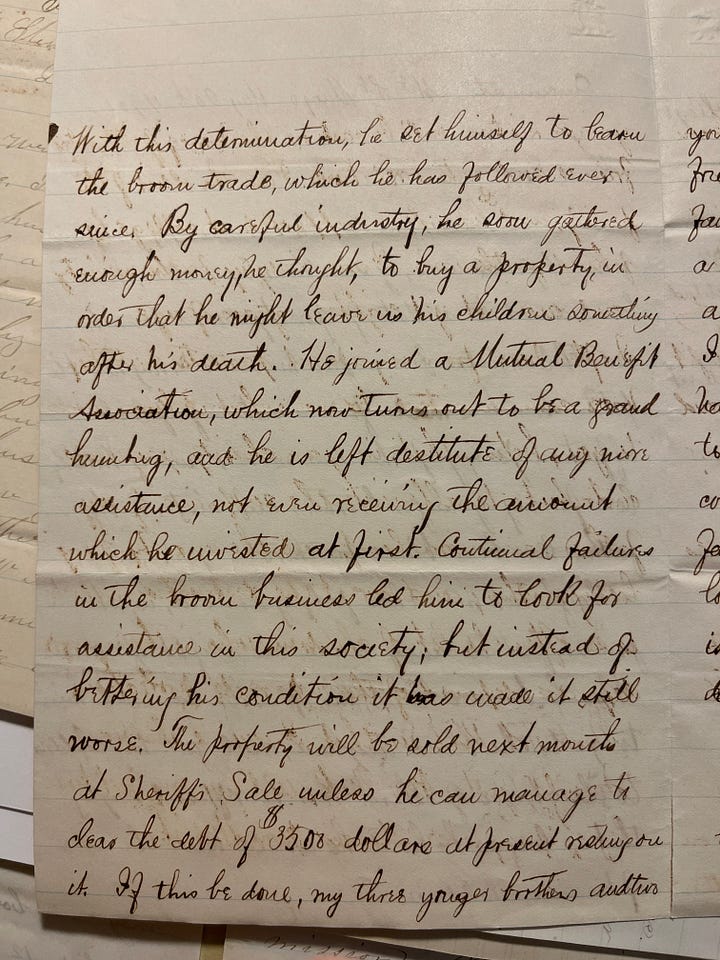 With this determination, he set himself to learn
the broom-trade, which he has followed ever
since. By careful industry, he soon gathered
enough money, he thought, to buy a property, in
order that he might leave us his children something
after his death. He joined a Mutual Benefit
Association, which now turns out to be a grand
humbug, and he is left destitute of any more
assistance, not even receiving the amount
which he invested at first. Continual failures
in the broom business led him to look for
assistance in this society; but instead of
bettering his condition it has made it still
worse. The property will be sold next month
at Sheriff's Sale unless he can manage to
clear the debt of $3500 dollars at present resting on
it. If this be done, my three yonger brothers and two